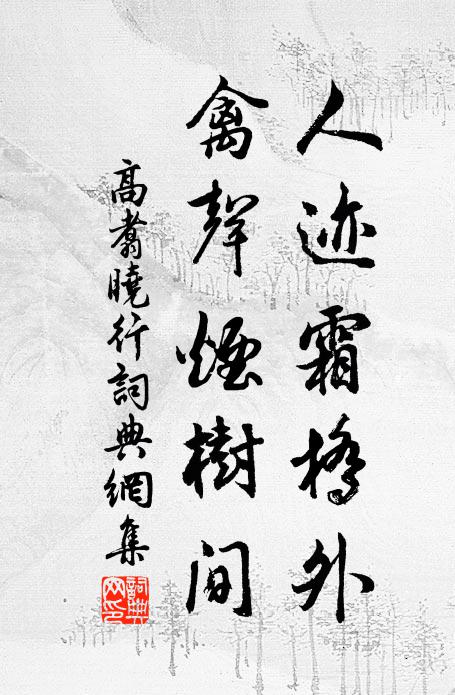 人迹霜橋外
禽聲煙樹間
高翥曉行詞典網集
詞典